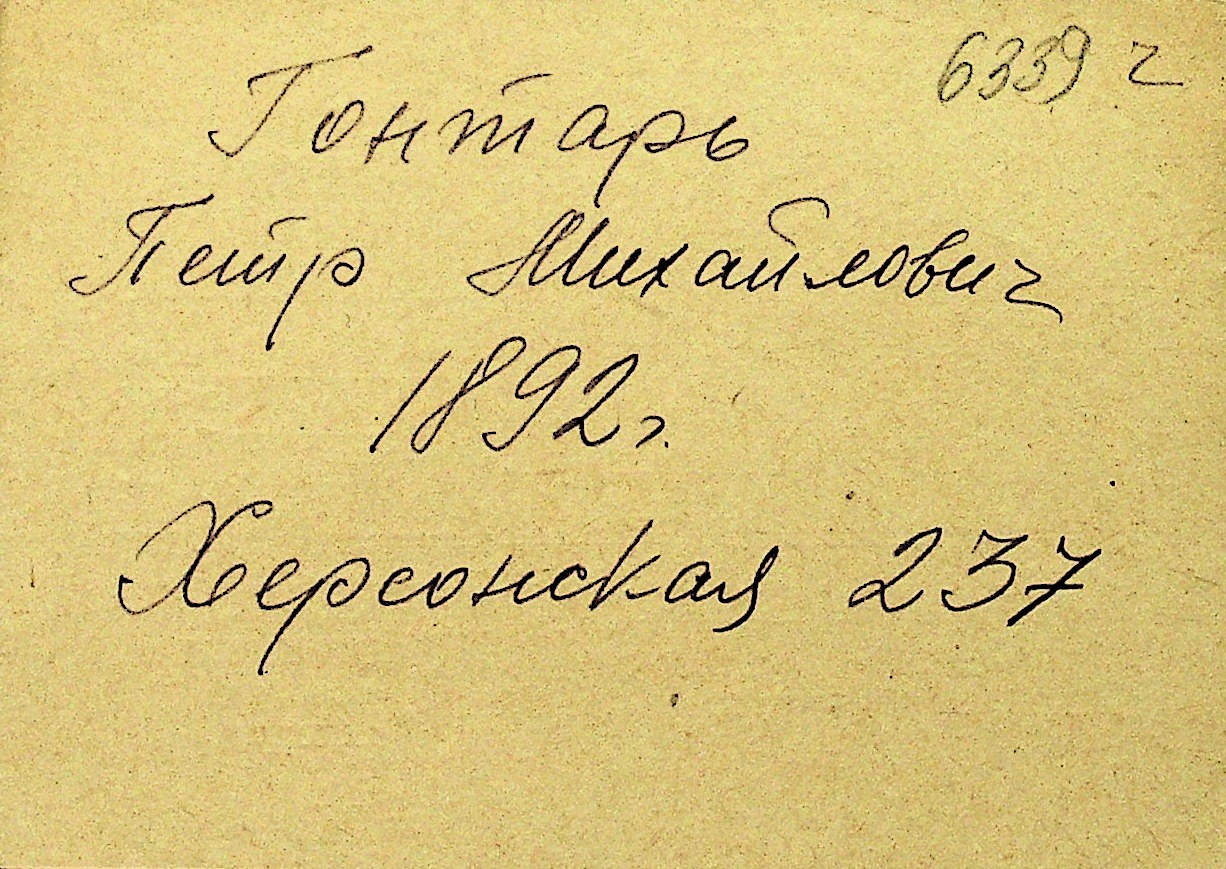 6339 ч
Гонтарь
Петр Михайлович
1892г.
Херсонская 237